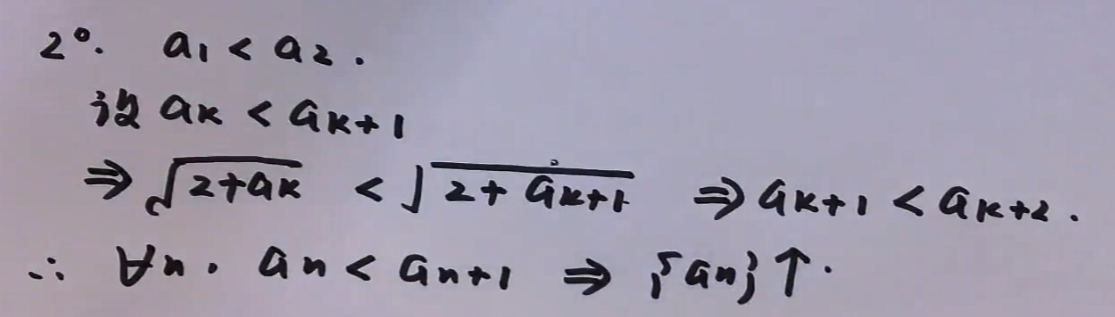 2°. a₁ < a₂.
设 aₖ < aₖ₊₁
⇒ √(2+aₖ) < √(2+aₖ₊₁) ⇒ aₖ₊₁ < aₖ₊₂.
∴ ∀n. aₙ < aₙ₊₁ ⇒ {aₙ}↑.